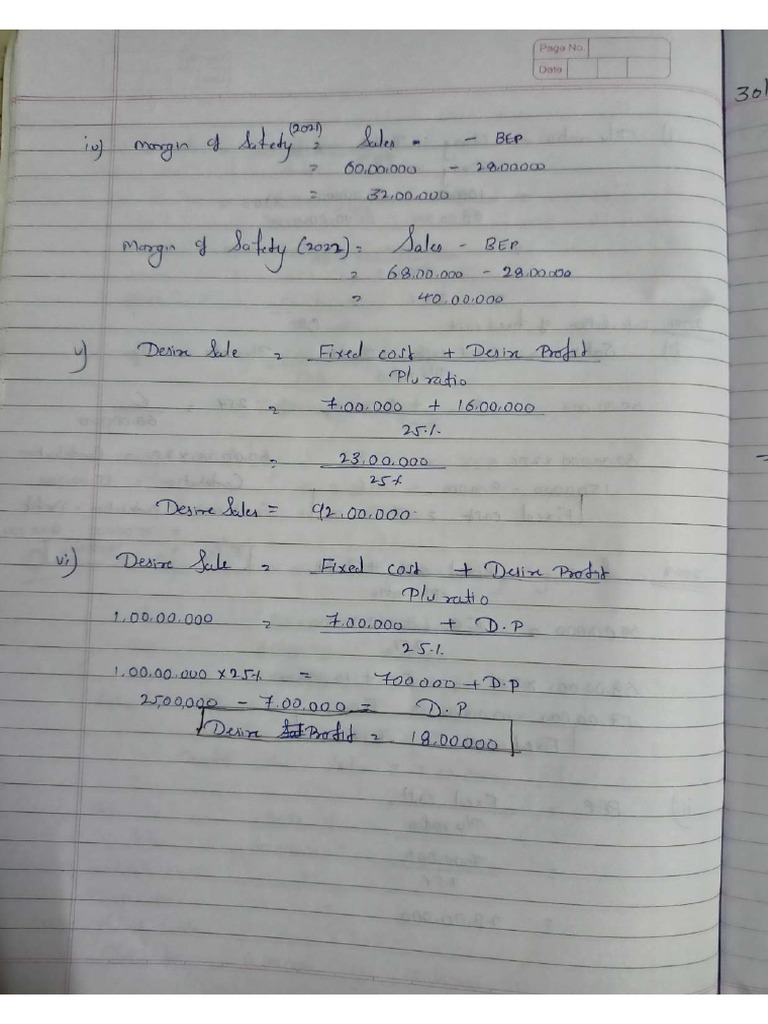 Page No.
Date
30
iv) Margin of Safety (2021) = Sales - - BEP
= 60,00,000 - 28,00,000
= 32,00,000
Margin of Safety (2022) = Sales - BEP
= 68,00,000 - 28,00,000
= 40,00,000
v) Desire Sale = Fixed cost + Desire Profit
P/v ratio
= 7,00,000 + 16,00,000
25%
= 23,00,000
25%
Desire Sales = 92,00,000
vi) Desire Sale = Fixed cost + Desire Profit
P/v ratio
1,00,00,000 = 7,00,000 + D.P
25%
1,00,00,000 x 25% = 700000 + D.P
25,00,000 - 7,00,000 = D.P
Desire Profit = 18,00000